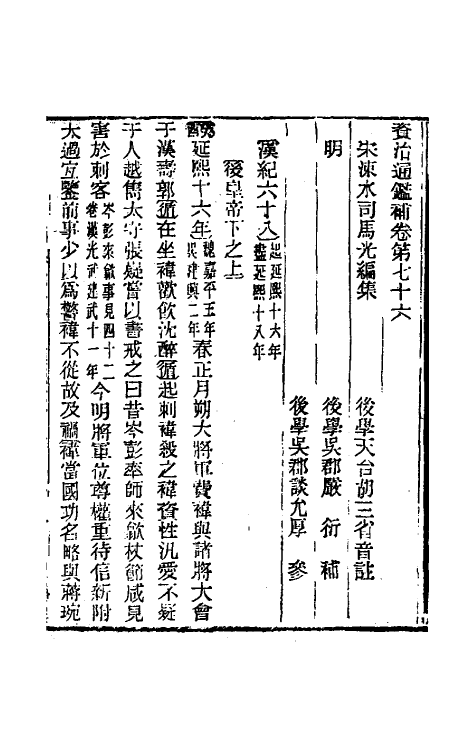 資治通鑑補卷第七十六
宋涑水司馬光編集　後學天台胡三省音註
明　後學吳郡嚴衍補
後學吳郡談允厚參
漢紀六十八起延熙十六年盡延熙十八年
後皇帝下之上
延熙十六年魏嘉平五年吳建興二年春正月朔大將軍費禕與諸將大會
于漢壽郭循在坐禕歡飲沈醉循起刺禕殺之禕資性汎愛不疑
于人越巂太守張嶷嘗以書戒之曰昔岑彭率師來歙杖節咸見
害於刺客岑彭來歙事見四十二卷漢光武建武十一年今明將軍位尊權重待信新附
太過宜鑒前事少以爲警禕不從故及禍禕當國功名略與蔣琬